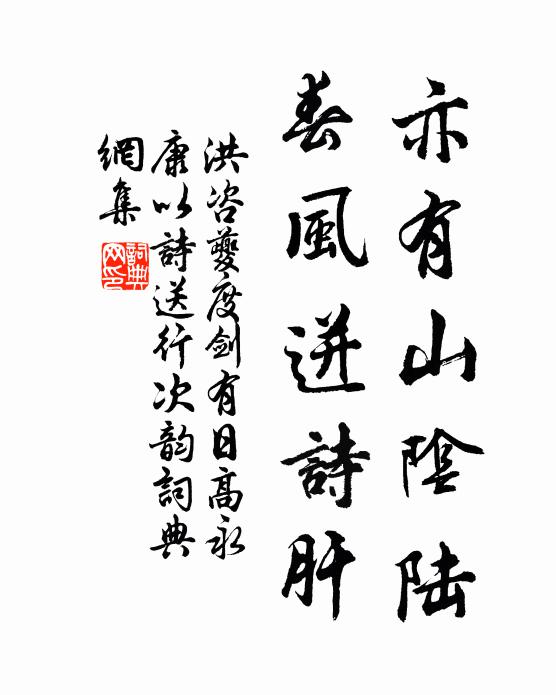 亦有山陰陆
春風迸詩肝
洪咨夔度劍有日高永
康以詩送行次韵詞典
網集
詞典網印